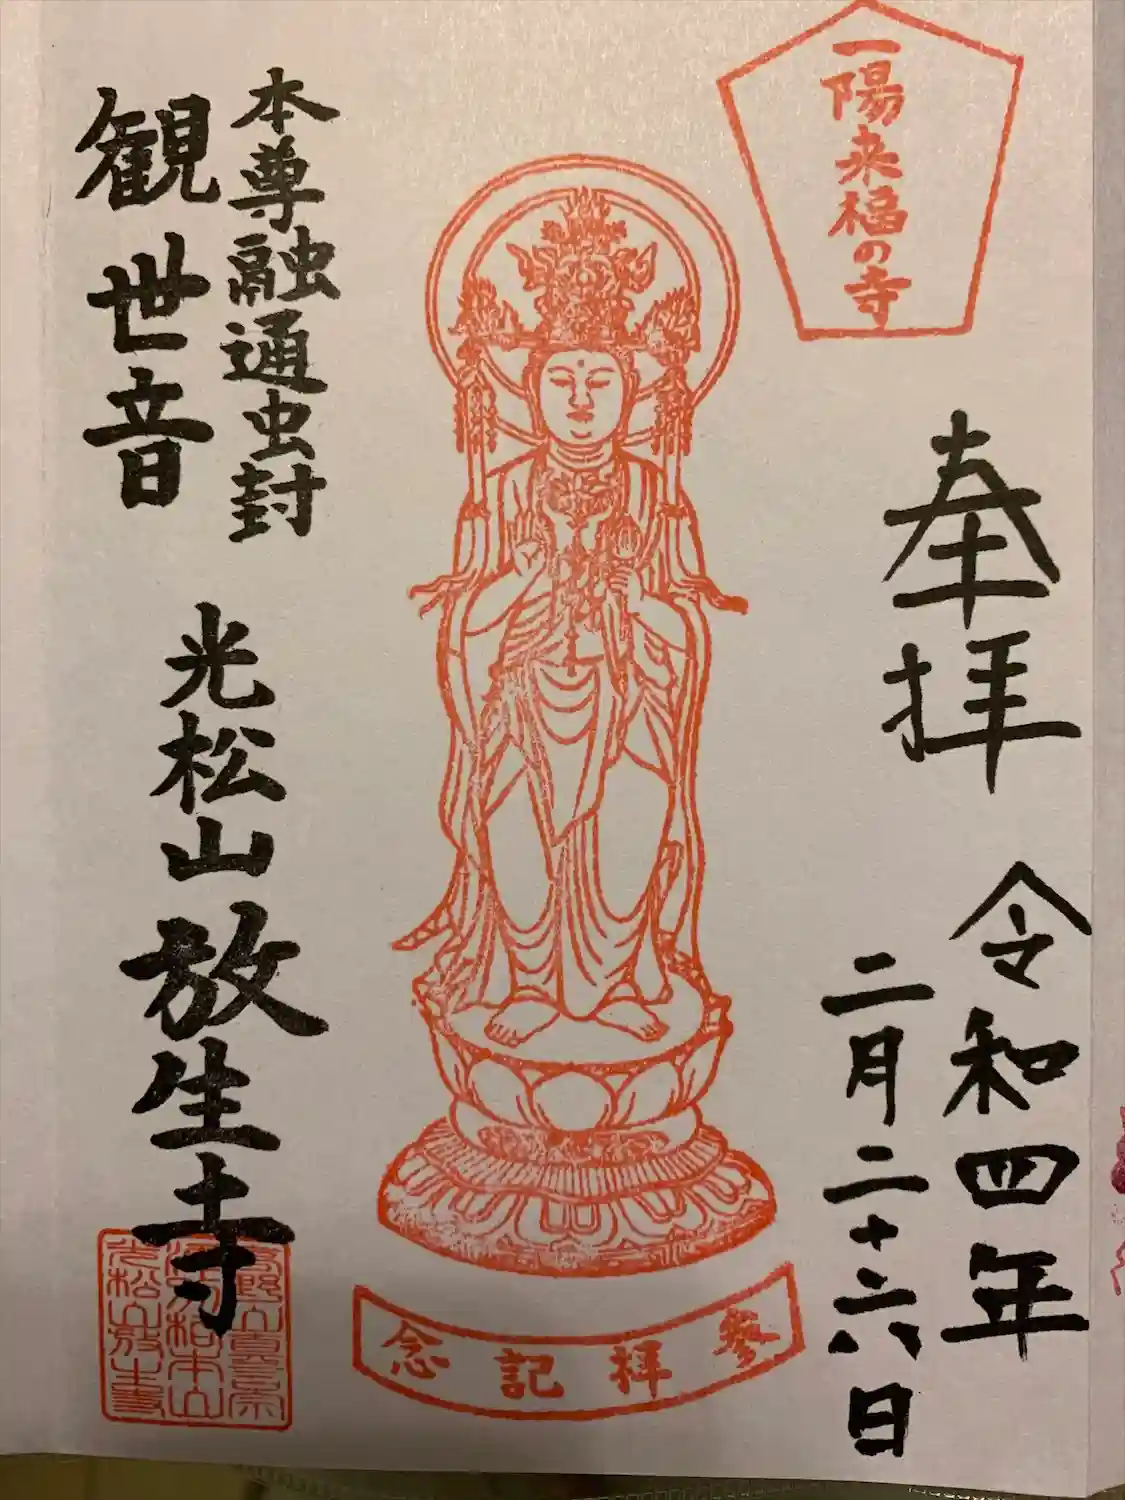 一陽来福の寺
奉拝
令和四年
二月二十六日
參拝記念
本尊融通虫封
観世音
光松山放生寺
高野山真言宗
光松山放生寺